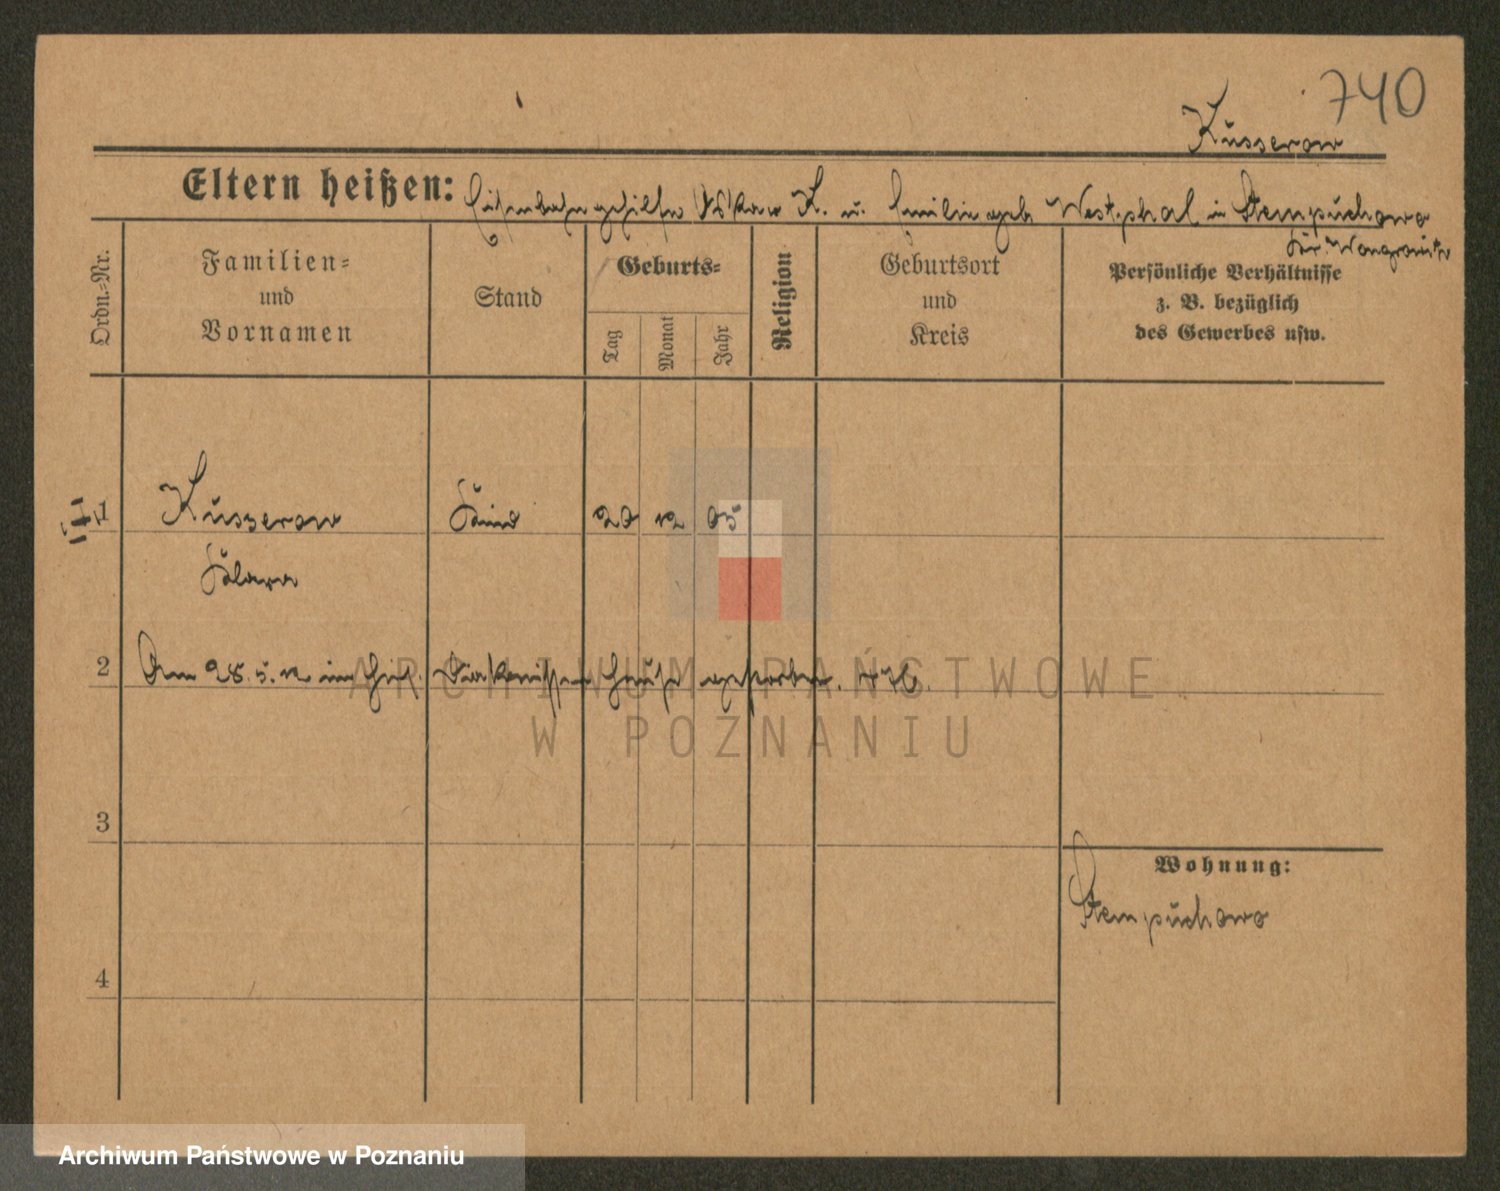 740
Kusserow
Eltern heißen: Eisenbahngehilfe Oskar K. u. Emilie geb. Westphal in Stempuchowo
Kr. Wongrowitz
Ordn.-Nr.
Familien-
und
Vornamen
Stand
Geburts-
Tag
Monat
Jahr
Religion
Geburtsort
und
Kreis
Persönliche Verhältnisse
z. B. bezüglich
des Gewerbes usw.
1 Kusserow Kind 12 05
Klara
2 Am 28.5.12 im Diakonissenhause gestorben.
3
4
Wohnung:
Stempuchowo
ARCHIWUM PAŃSTWOWE
W POZNANIU
Archiwum Państwowe w Poznaniu